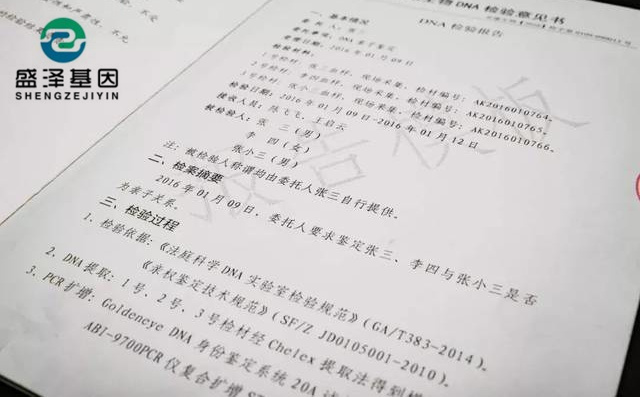 盛泽基因
SHENGZEJIYIN
生物DNA检验意见书
DNA检验报告
一、基本情况
委托事项:DNA亲子鉴定
受理日期:2016年01月09日
检验材料:
1号检材:张三血样,现场采集,检材编号:AK2016010764。
2号检材:李四血样,现场采集,检材编号:AK2016010765。
3号检材:张小三血样,现场采集,检材编号:AK2016010766。
检验日期:2016年01月09日-2016年01月12日
接收人员:陈七飞、王启云
被检验人:张 三(男)
李 四(女)
张小三(男)
注:被检验人称谓均由委托人张三自行提供。
二、检案摘要
2016年01月09日,委托人要求鉴定张三、李四与张小三是否
为亲子关系。
三、检验过程
1、检验依据:《法庭科学DNA实验室检验规范》(GA/T383-2014)。
《亲权鉴定技术规范》(SF/Z JD0105001-2010)。
2、DNA提取:1号、2号、3号检材经Chelex提取法得到模
3、PCR扩增:Goldeneye DNA身份鉴定系统20A
ABI-9700PCR仪复合扩增
报告模版